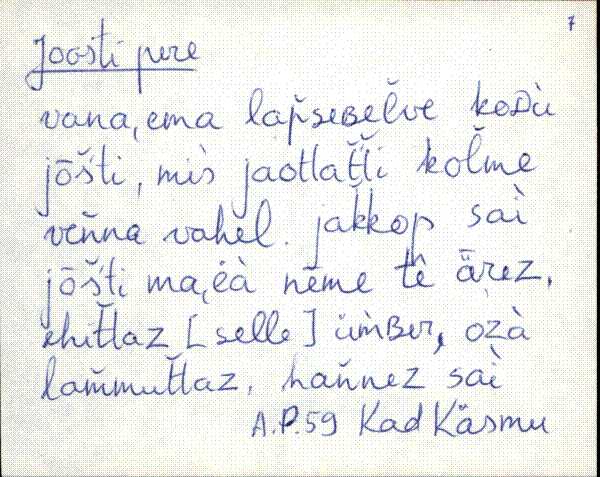 7
Joosti pere
vana,ema lap̆seʙĕlve koᴅù
jōs̆ti, mis̀ jaòtlat̆t̆i kol̆me
ven̆na vahel. jak̆kop saì
jōs̆ti ma,éà nēme tê ǟrez,
ehit̆taz [selle] üm̀ʙer, òzà
lam̆mut̆taz, han̆nez saì
A.P.59 Kad Käsmu